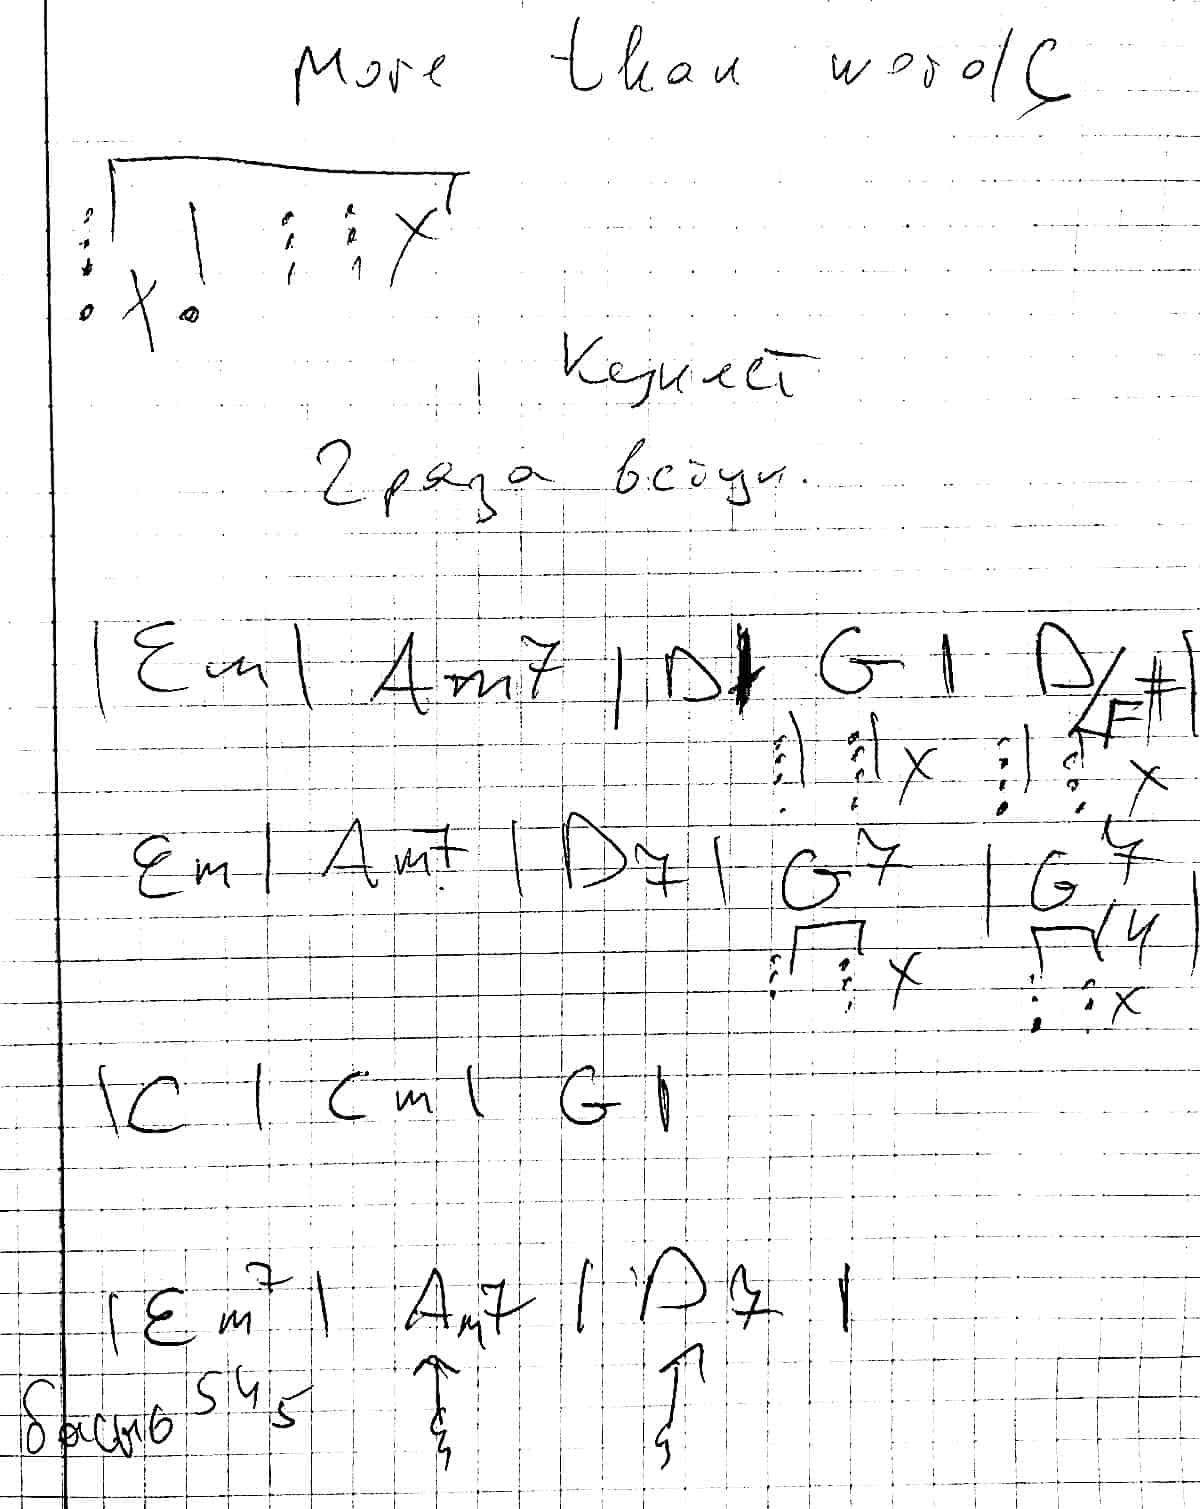 More than words
Куплет
2 раза вступ.
| Em | Am7 | D | G | D/F# |
Em | Am7 | D7 | G7 | G7/4 |
| C | Cm | G |
| Em7 | Am7 | D7 |
5 4 5